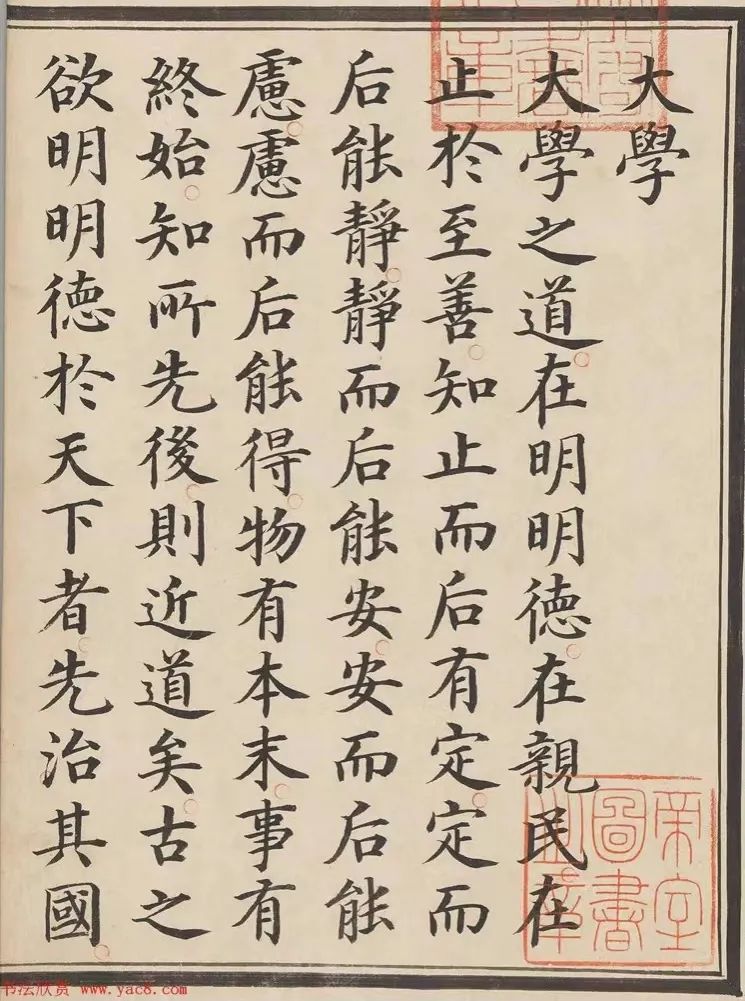 大學
大學之道在明明德在親民在
止於至善知止而后有定定而
后能靜靜而后能安安而后能
慮慮而后能得物有本末事有
終始知所先後則近道矣古之
欲明明德於天下者先治其國
帝室圖書之章
书法欣赏 www.yac8.com